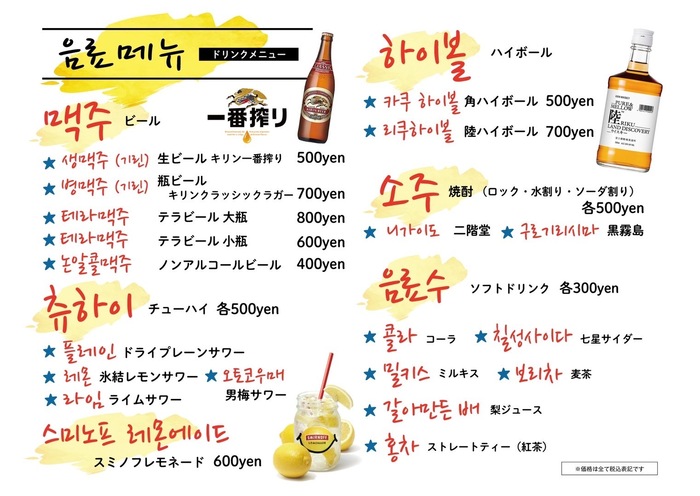 음료 메뉴 ドリンクメニュー
맥주 ビール
一番搾り
생맥주 (기린) 生ビール キリン一番搾り 500yen
병맥주 (기린) 瓶ビール
キリンクラッシックラガー 700yen
테라맥주 テラビール 大瓶 800yen
테라맥주 テラビール 小瓶 600yen
논알콜맥주 ノンアルコールビール 400yen
츄하이 チューハイ 各500yen
플레인 ドライプレーンサワー
레몬 氷結レモンサワー
오토코우매
男梅サワー
라임 ライムサワー
스미노프 레몬에이드
スミノフレモネード 600yen
SMIRNOFF
하이볼 ハイボール
카쿠 하이볼 角ハイボール 500yen
리쿠하이볼 陸ハイボール 700yen
PURE &
MELLOW
陸 RIKU
LAND DISCOVERY
소주 焼酎 (ロック・水割り・ソーダ割り)
各500yen
니가이도 二階堂
구로기리시마 黒霧島
음료수 ソフトドリンク 各300yen
콜라 コーラ
칠성사이다 七星サイダー
밀키스 ミルキス
보리차 麦茶
갈아만든 배 梨ジュース
홍차 ストレートティー (紅茶)
※価格は全て税込表記です